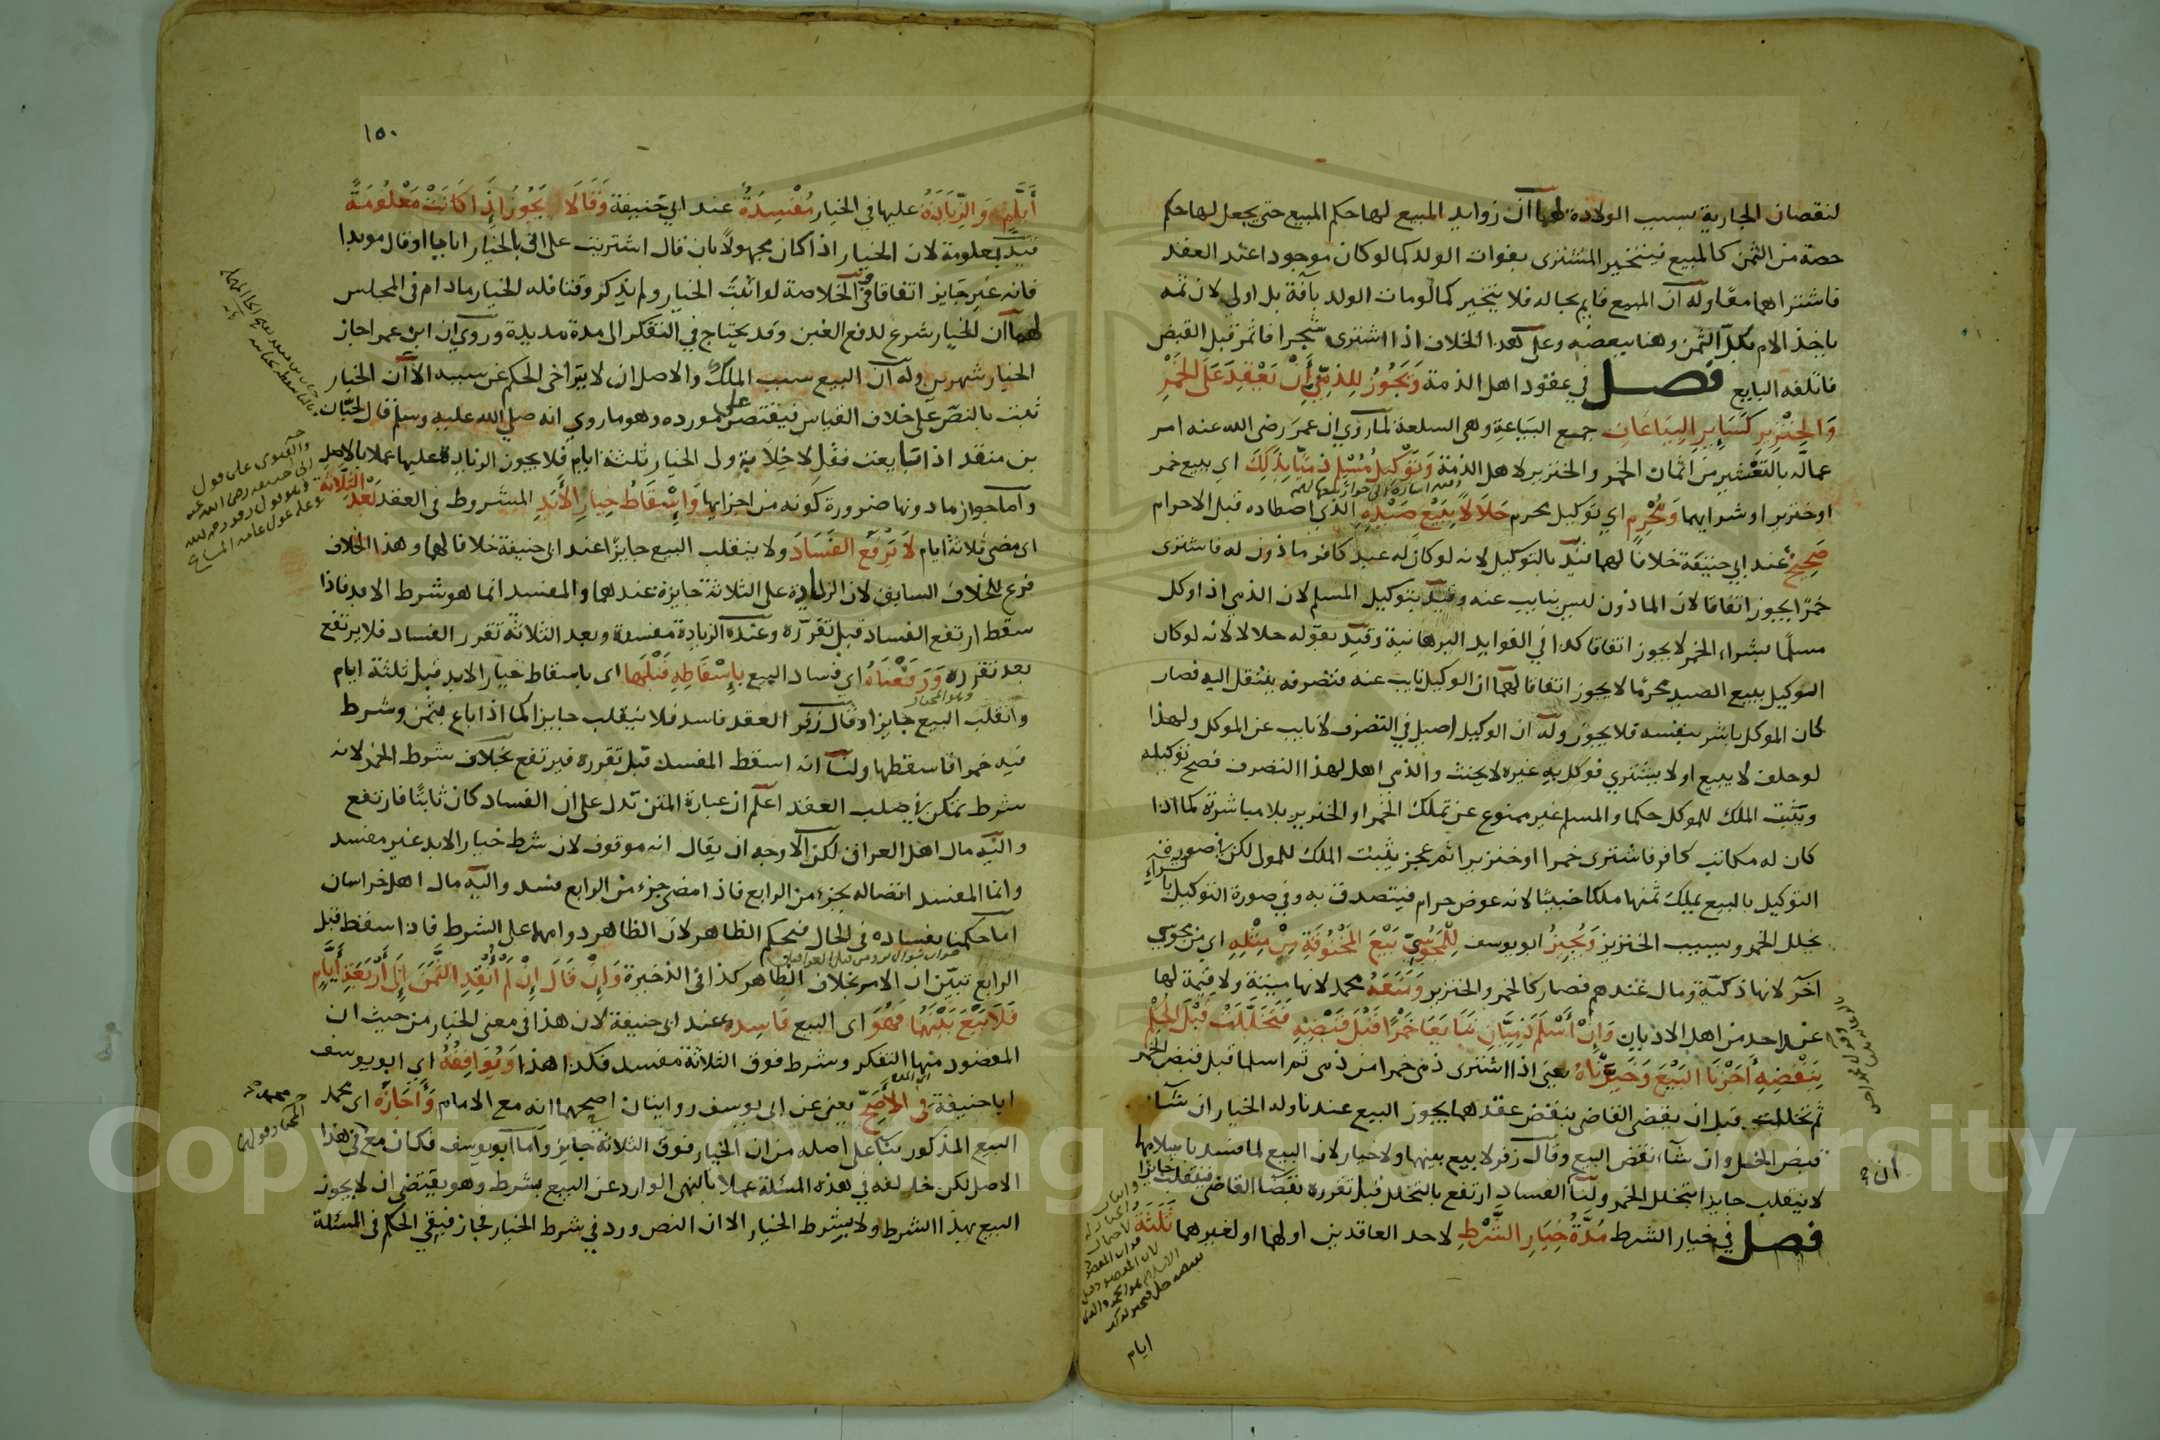 لنقصان الجارية بسبب الولادة لهما ان زوايد المبيع لها حكم المبيع حتى يجعل لها حكم
حصة من الثمن كالمبيع فيتخير المشترى بفوات الولد كما لو كان موجودا عند العقد
فاشتراهما معا وله ان المبيع قايم بحاله فلا يتخير كما لو مات الولد بآفة بل اولى لان ثمه
ياخذ الام بكل الثمن وهنا ببعضه وعلى هذا الخلاف اذا اشترى شجرا فاثمر قبل القبض
فاتلفه البايع فصل في عقود اهل الذمة وَيَجُوزُ لِلذِمِّيِّ أَنْ يَعْقِدَ عَلَى الْخَمْرِ
وَالْخِنْزِيرِ كَسَايِرِ الْبِيَاعَاتِ جمع البياعة وهى السلعة لما روي ان عمر رضى الله عنه امر
عماله بالتعشير من اثمان الخمر والخنزير لاهل الذمة وَتَوْكِيلُ مُسْلِمٍ ذِمِّيًّا بِذَلِكَ اي ببيع خمر
او خنزير او شرايهما وَمُحْرِمٍ اي توكيل محرم حَلَالًا بِبَيْعِ صَيْدِهِ الذي اصطاده قبل الاحرام
صَحِيحٌ عند ابي حنيفة خلافا لهما قيد بالتوكيل لانه لو كان له عبد كافر ماذون له فاشترى
خمرًا يجوز اتفاقا لان الماذون ليس بنايب عنه وقيد بتوكيل المسلم لان الذمي اذا وكل
مسلمًا بشراء الخمر لا يجوز اتفاقا كذا في الفوايد البرهانية وقيد بقوله حلالا لانه لو كان
الوكيل ببيع الصيد محرما لا يجوز اتفاقا لهما ان الوكيل نايب عنه فتصرفه ينتقل اليه فصار
كان الموكل باشر بنفسه فلا يجوز وله ان الوكيل اصيل في التصرف لا نايب عن الموكل ولهذا
لو حلف لا يبيع او لا يشتري فوكل به غيره لا يحنث والذمي اهل لهذا التصرف فصح توكيله
ويثبت الملك للموكل حكما والمسلم غير ممنوع عن تملك الخمر او الخنزير بلا مباشرة كما اذا
كان له مكاتب كافر فاشترى خمرا او خنزيرا ثم عجز يثبت الملك للمولى لكن في صورة
التوكيل بالبيع يملك ثمنها ملكا خبيثا لانه عوض حرام فيتصدق به وفي صورة التوكيل بالشراء
يخلل الخمر ويسيب الخنزير وَيُجِيزُ ابو يوسف لِلْمَجُوسِيِّ بَيْعَ الْمَخْنُوقَةِ مِنْ مِثْلِهِ اي من مجوسي
آخر لانها ذكية ومال عندهم فصار كالخمر والخنزير وَمَنَعَهُ محمد لانها ميتة ولا قيمة لها
عند احد من اهل الاديان وَإِنْ أَسْلَمَ ذِمِّيَّانِ تَبَايَعَا خَمْرًا قَبْلَ قَبْضِهِ فَتَخَلَّلَتْ قَبْلَ الْحُكْمِ
بِنَقْضِهِ أَجَزْنَا الْبَيْعَ وَخَيَّرْنَاهُ يعنى اذا اشترى ذمى خمرا من ذمى ثم اسلما قبل قبض الخمر
ثم تخللت قبل ان يقضى القاضى بنقض عقدهما يجوز البيع عندنا وله الخيار ان شاء
قبض الخل وان شاء نقض البيع وقال زفر لا بيع بينهما ولا خيار لان البيع لما فسد باسلامهما
لا ينقلب جايزا بتخلل الخمر ولنا ان الفساد ارتفع بالتخلل قبل تقرره بقضا القاضى فينقلب جايزا
فصل في خيار الشرط مُدَّةُ خِيَارِ الشَّرْطِ لاحد العاقدين او لهما او لغيرهما ثَلَثَةُ
ايام
١٥٠
أَيَّامٍ وَالزِّيَادَةُ عليها في الخيار مُفْسِدَةٌ عند ابي حنيفة وَقَالَا يَجُوزُ إِذَا كَانَتْ مَعْلُومَةً
قيد بمعلومة لان الخيار اذا كان مجهولا بان قال اشتريت على انى بالخيار اياما او قال موبدا
فانه غير جايز اتفاقا وفى الخلاصة لو اثبت الخيار ولم يذكر وقتا فله الخيار مادام فى المجلس
لهما ان الخيار شرع لدفع الغبن وقد يحتاج في التفكر الى مدة مديدة وروي ان ابن عمر اجاز
الخيار شهرين وله ان البيع سبب الملك والاصل ان لا يتراخى الحكم عن سببه الا ان الخيار
ثبت بالنص على خلاف القياس فيقتصر على مورده وهو ما روي انه صلي الله عليه وسلم قال لحبان
بن منقذ اذا تبايعت فقل لا خلابة ولى الخيار ثلثة ايام فلا يجوز الزيادة عليها عملا بالاصل
واما جواز ما دونها ضرورة كونه من اجزايها وَإِسْقَاطُ خِيَارِ الْأَبَدِ المشروط فى العقد بَعْدَ الثَّلَاثَةِ
اى مضى ثلاثة ايام لَا يَرْفَعُ الْفَسَادَ ولا ينقلب البيع جايزا عند ابى حنيفة خلافا لهما وهذا الخلاف
فرع للخلاف السابق لان الزيادة على الثلاثة جايزة عندهما والمفسد انما هو شرط الابد فاذا
سقط ارتفع الفساد قبل تقرره وعنده الزيادة مفسدة وبعد الثلاثة تقرر الفساد فلا يرتفع
بعد تقرره وَرَفَعْنَاهُ اي فساد البيع بِإِسْقَاطِهِ قَبْلَهَا اى باسقاط خيار الابد قبل ثلثة ايام
وانقلب البيع جايزا وقال زفر العقد فاسد فلا ينقلب جايزا كما اذا باع بثمن وشرط
فيه خمرا فاسقطها ولنا انه اسقط المفسد قبل تقرره فيرتفع بخلاف شرط الخمر لانه
شرط يمكن في صلب العقد اعلم ان عبارة المتن تدل على ان الفساد كان ثابتا فارتفع
واليه مال اهل العراق لكن الاوجه ان يقال انه موقوف لان شرط خيار الابد غير مفسد
وانما المفسد اتصاله بجزء من الرابع فاذا مضى جزء من الرابع فسد واليه مال اهل خراسان
اما حكمنا بفساده فى الحال فبحكم الظاهر لان الظاهر دوامهما على الشرط فاذا اسقط قبل
الرابع تبين ان الامر بخلاف الظاهر كذا فى الذخيرة وَإِنْ قَالَ إِنْ لَمْ أَنْقُدِ الثَّمَنَ إِلَى أَرْبَعَةِ أَيَّامٍ
فَلَا بَيْعَ بَيْنَهُمَا فَهُوَ اى البيع فَاسِدٌ عند ابى حنيفة لان هذا فى معنى الخيار من حيث ان
المقصود منها التفكر وشرط فوق الثلاثة مفسد فكذا هذا وَيُوَافِقُهُ اي ابو يوسف
ابا حنيفة فى الْأَصَحِّ يعنى عن ابى يوسف روايتان اصحهما انه مع الامام وَأَجَازَهُ اى محمد
البيع المذكور بناء على اصله من ان الخيار فوق الثلاثة جايز واما ابو يوسف فكان مع فى هذا
الاصل لكن خالفه في هذه المسئلة عملا بالنهى الوارد عن البيع بشرط وهو يقتضى ان لا يجوز
البيع بهذا الشرط ولا بشرط الخيار الا ان النص ورد في شرط الخيار فجاز فبقي الحكم فى المسئلة
والفتوى على قول
ابى حنيفة رضى الله عنه
Copyright © King Saud University